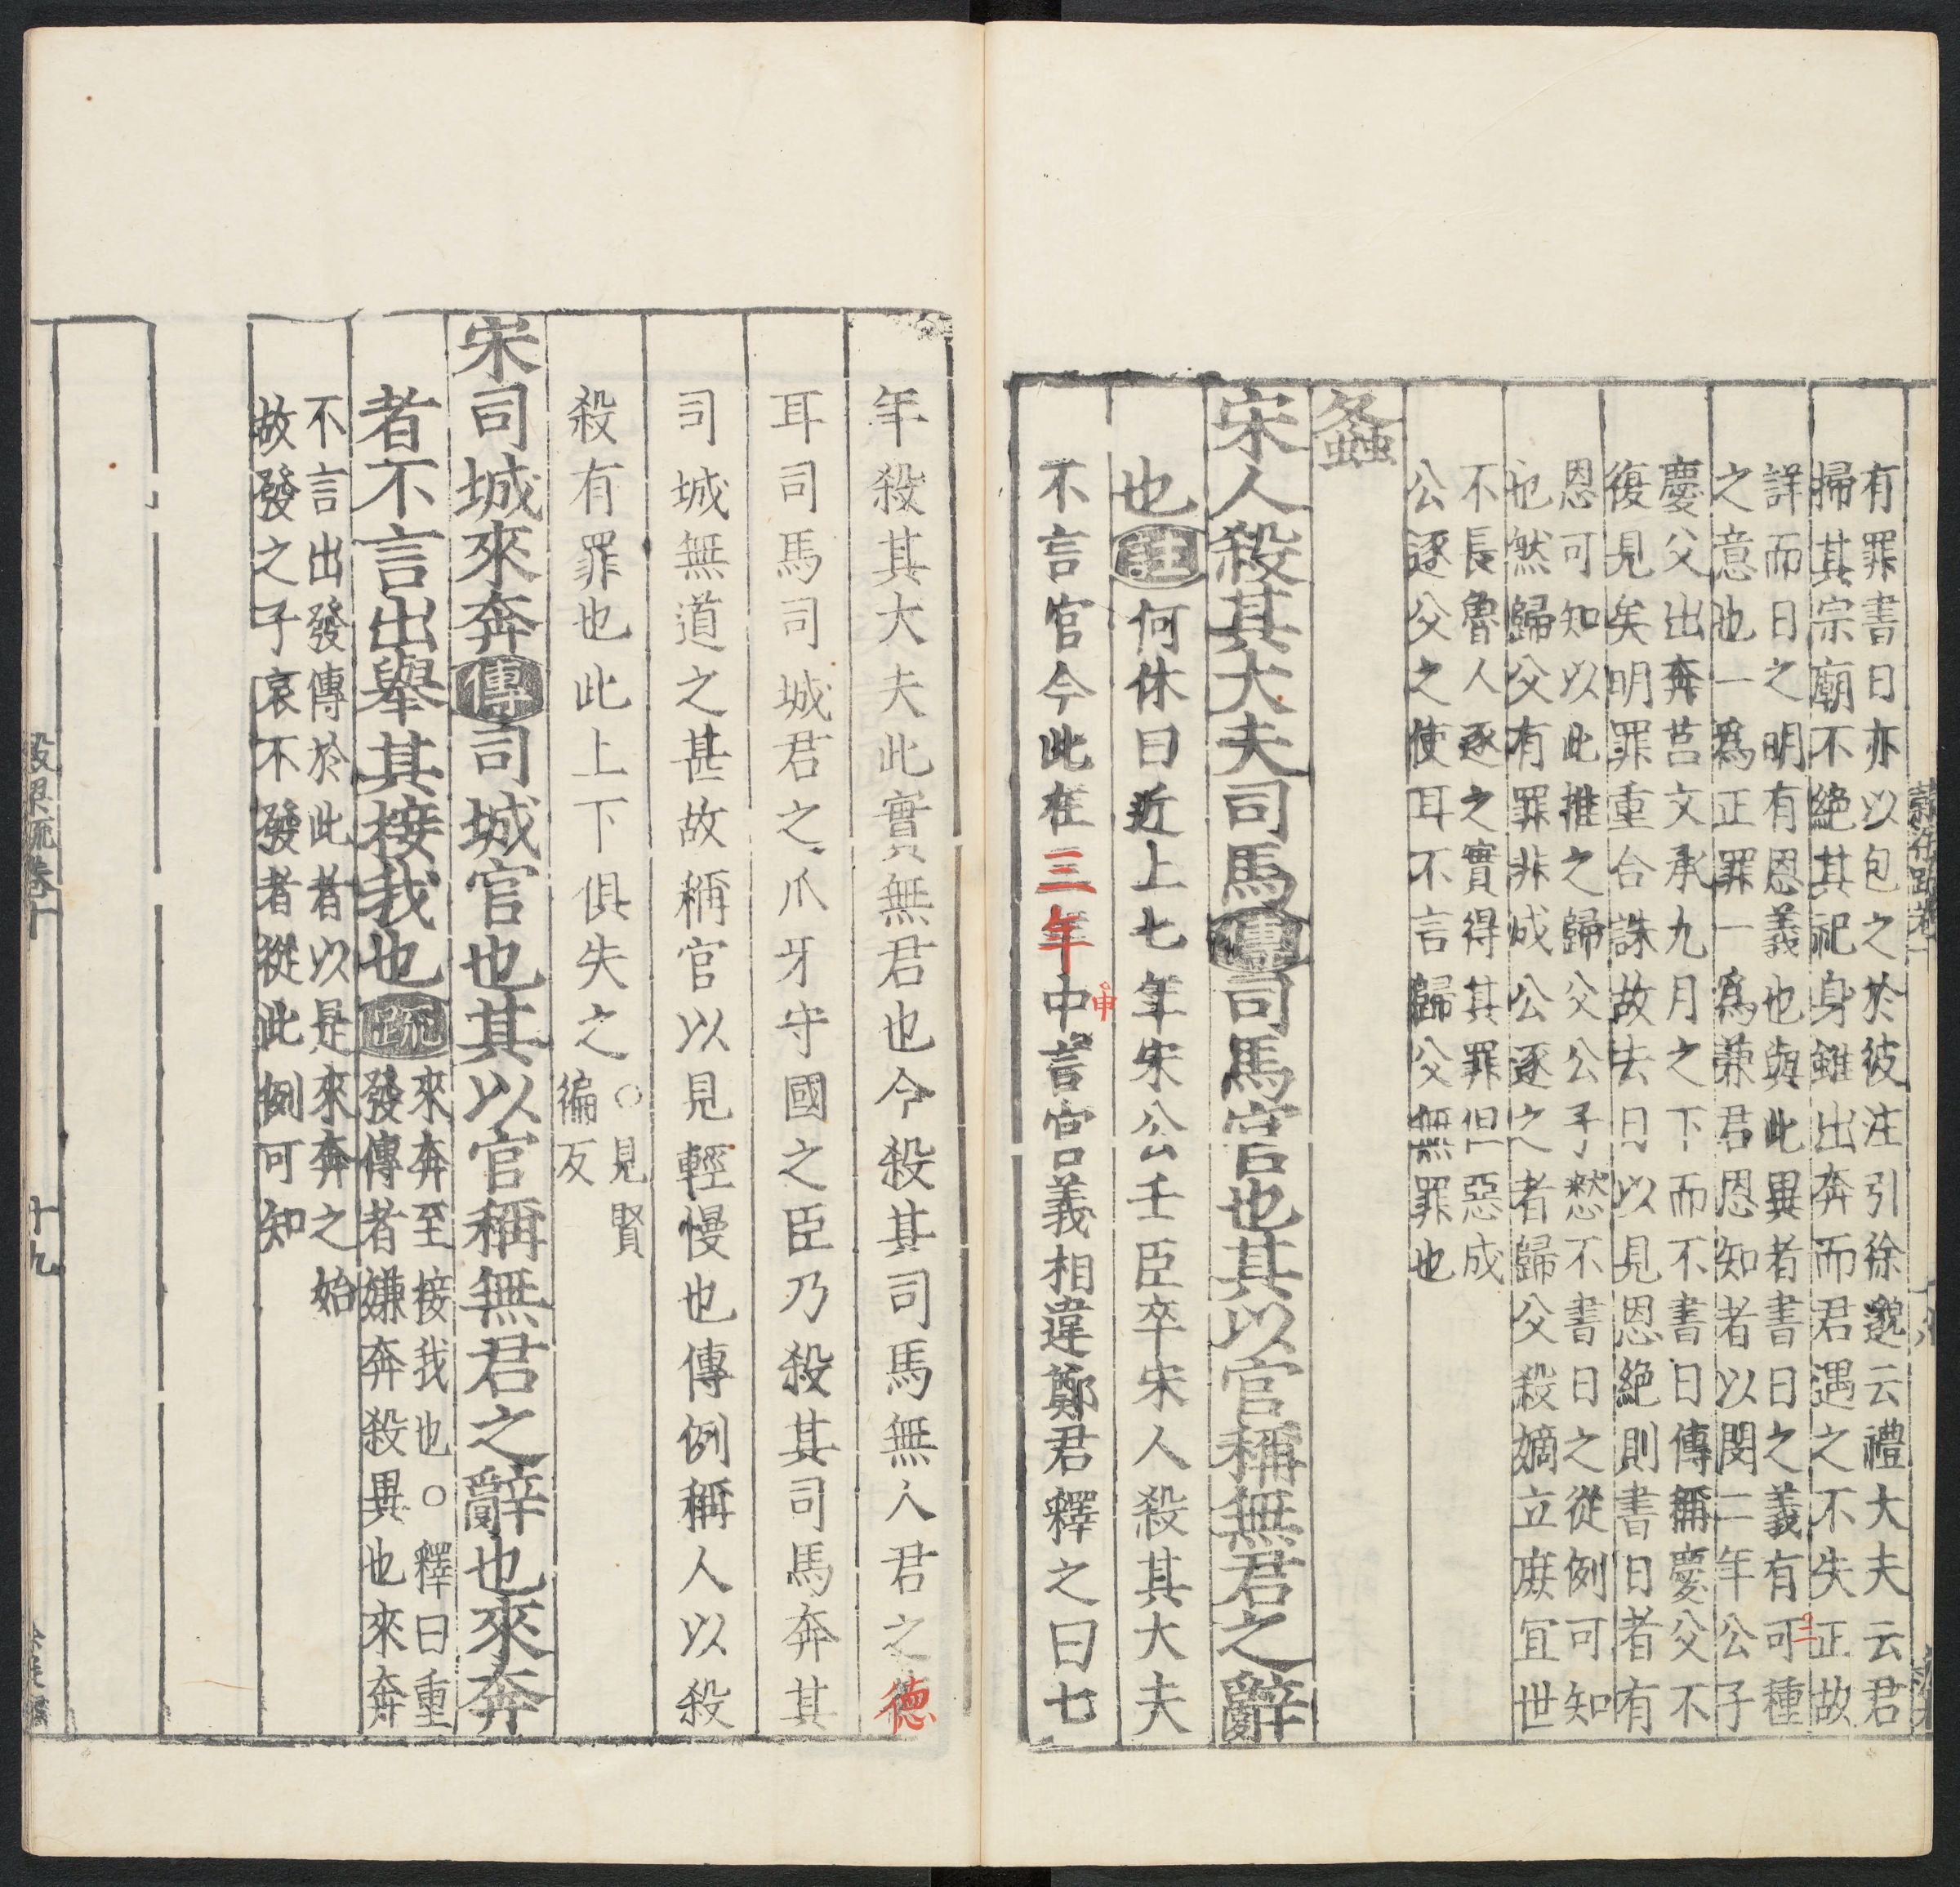 有罪書日亦以包之於彼注引徐邈云禮大夫云君
掃其宗廟不絕其祀身雖出奔而君遇之不失正故
詳而日之明有恩義也與此異者書日之義有可種
之意也一爲正罪一爲兼君恩知者以閔二年公子
慶父出奔莒文承九月之下而不書日傳稱慶父不
復見矣明罪重合誅故去日以見恩絕則書日者有
恩可知以此推之歸父公子憖不書日之從例可知
也然歸父有罪非成公逐之者歸父殺嫡立庶宜世
不長魯人逐之實得其罪但惡成
公逐父之使耳不言歸父無罪也
螽
宋人殺其大夫司馬傳司馬官也其以官稱無君之辭
也註何休曰近上七年宋公壬臣卒宋人殺其大夫
不言官今此在三年中言官義相違鄭君釋之曰七
申
二
年殺其大夫此實無君也今殺其司馬無人君之德
耳司馬司城君之爪牙守國之臣乃殺其司馬奔其
司城無道之甚故稱官以見輕慢也傳例稱人以殺
殺有罪也此上下俱失之○見賢徧反
宋司城來奔傳司城官也其以官稱無君之辭也來奔
者不言出舉其接我也疏來奔至接我也○釋曰重
發傳者嫌奔殺異也來奔
不言出發傳於此者以是來奔之始
故發之子哀不發者從此例可知
穀梁疏卷十
十九